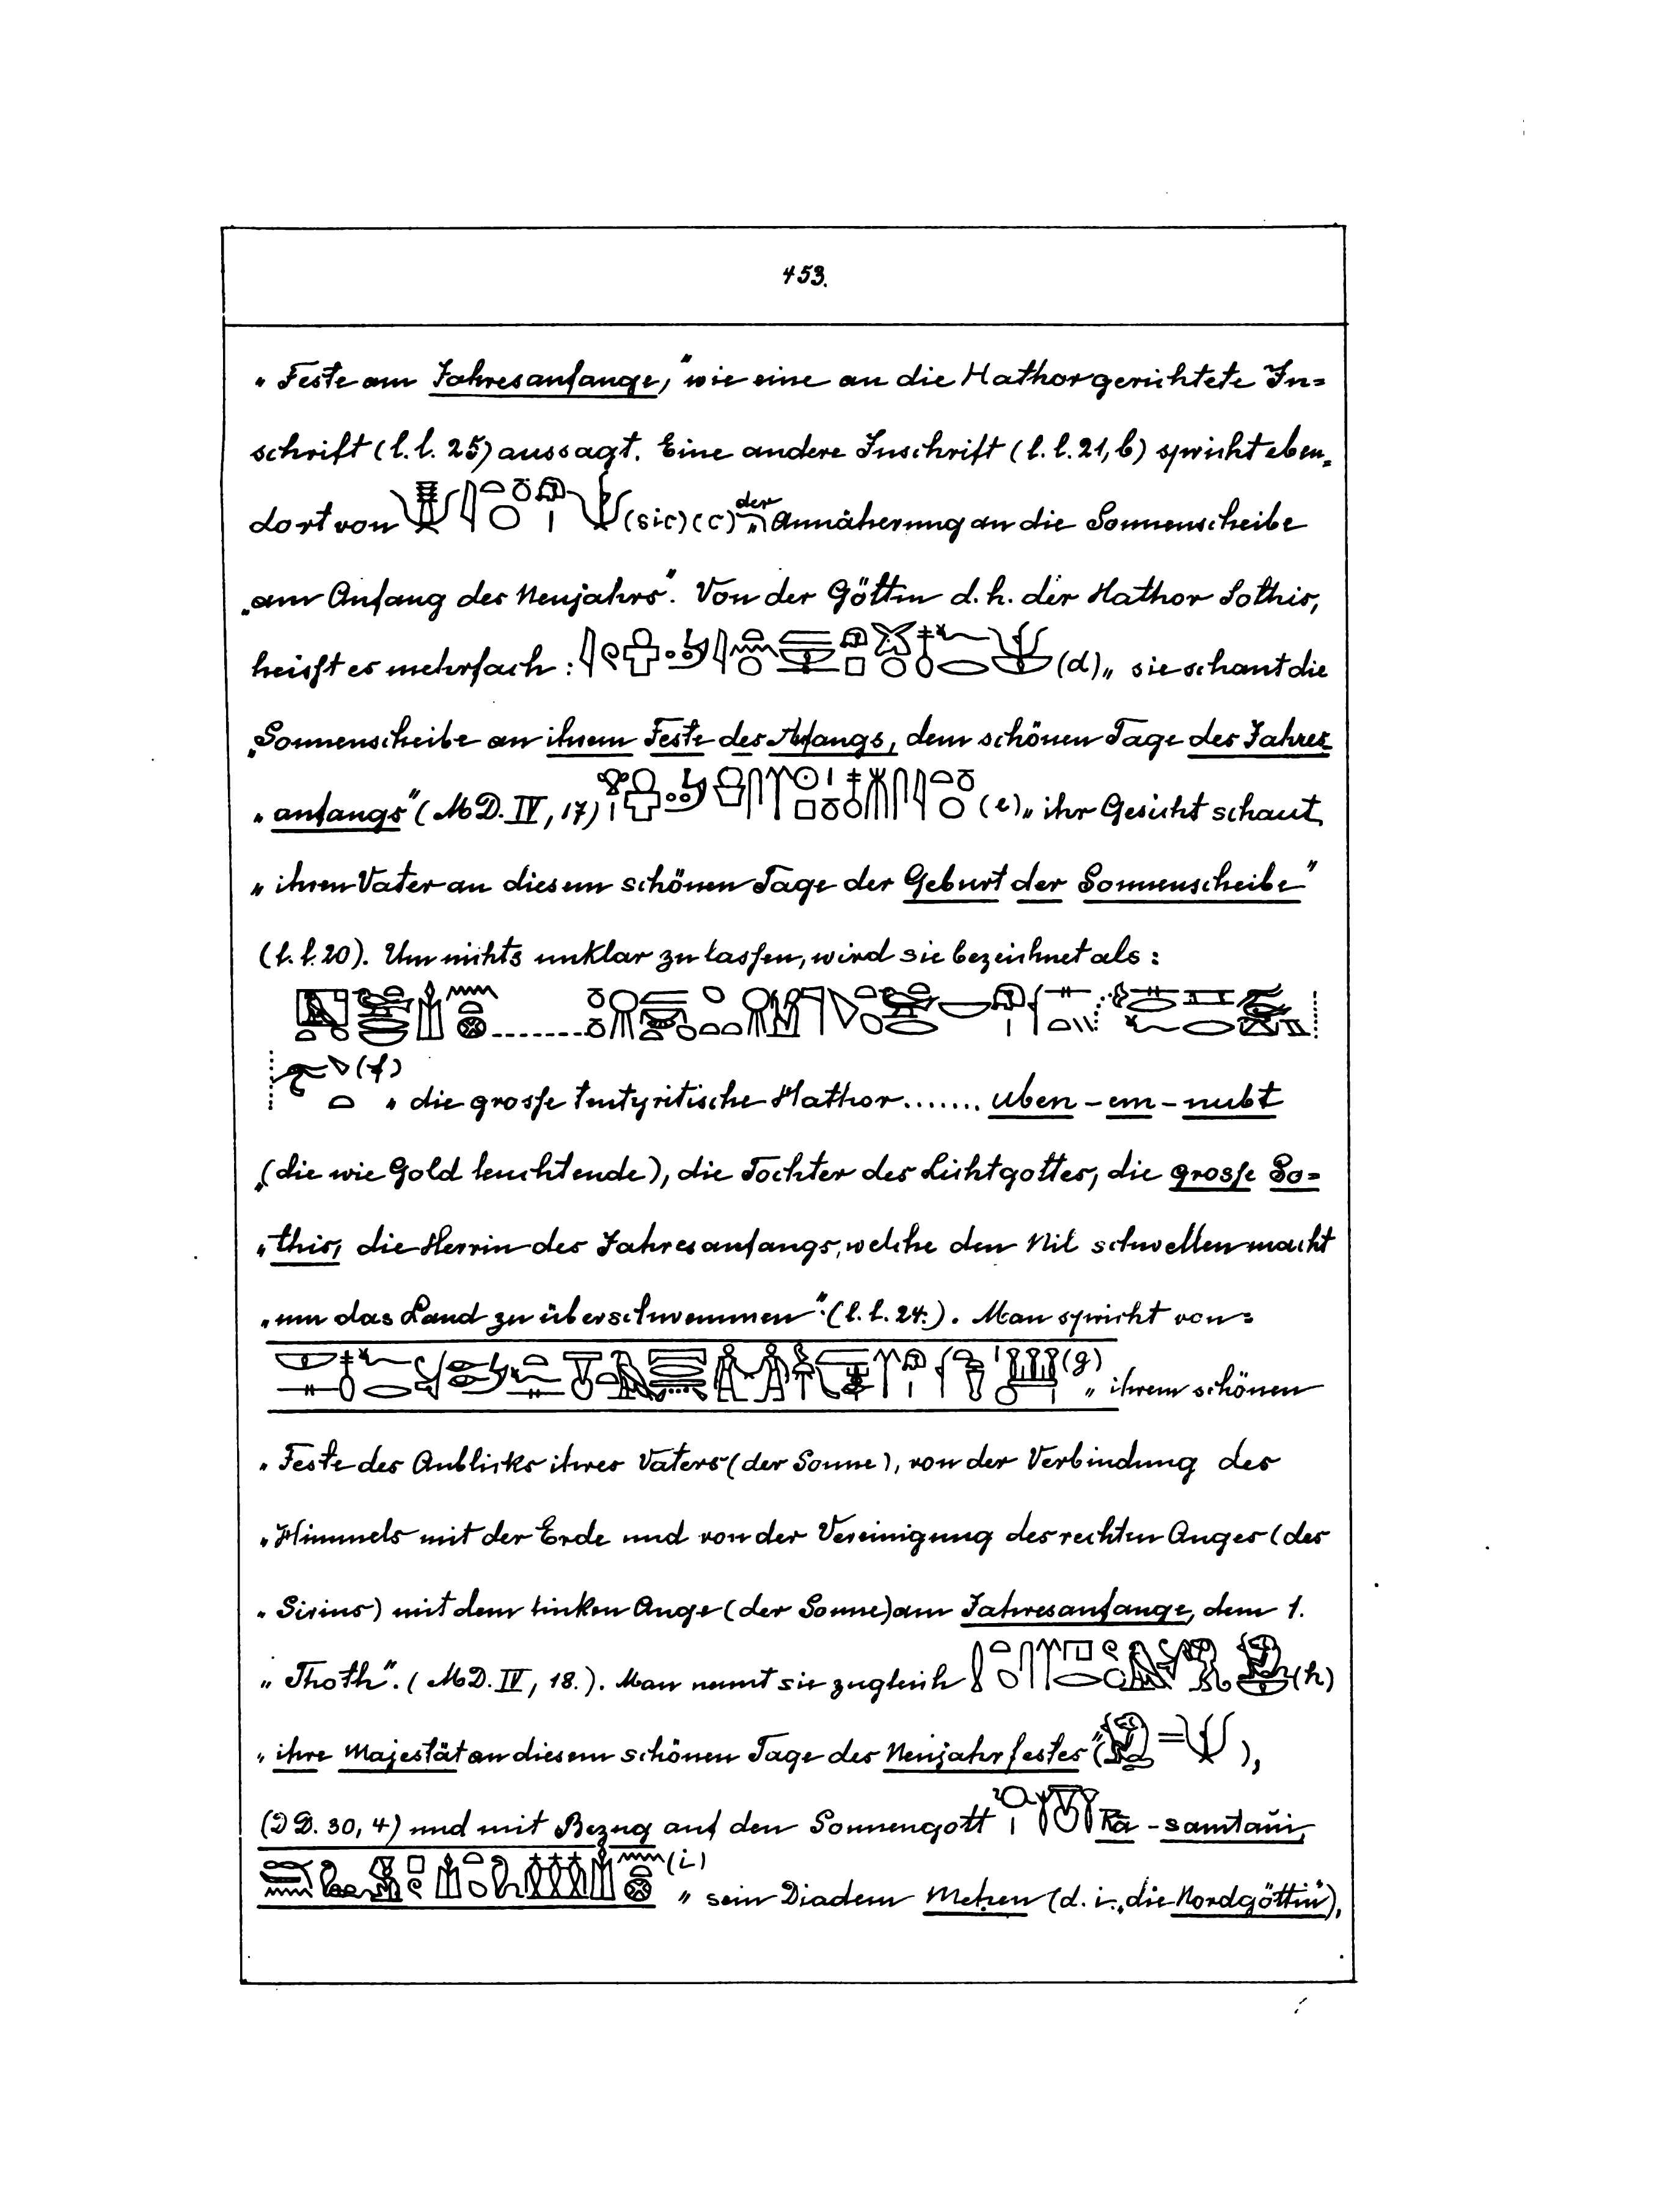 453.
„Feste am Jahresanfange,“ wie eine an die Hathor gerichtete In=
schrift (l. l. 25) aussagt. Eine andere Inschrift (l. l. 21, b) spricht eben=
dort von (sic) (c) „der Annäherung an die Sonnenscheibe
„am Anfang des Neujahrs“. Von der Göttin d. h. der Hathor Sothis,
heisst es mehrfach: (d) „sie schaut die
„Sonnenscheibe an ihrem Feste des Anfangs, dem schönen Tage des Jahres
„anfangs“ (MD. IV, 17) (e) „ihr Gesicht schaut
„ihren Vater an diesem schönen Tage der Geburt der Sonnenscheibe“
(l. l. 20). Um nichts unklar zu lassen, wird sie bezeichnet als:
........
(f) „die grosse tentyritische Hathor....... uben-em-nubt
„(die wie Gold leuchtende), die Tochter des Lichtgottes, die grosse So=
„this, die Herrin des Jahresanfangs, welche den Nil schwellen macht
„um das Land zu überschwemmen“. (l. l. 24.). Man spricht von:
(g) „ihrem schönen
„Feste des Anblicks ihres Vaters (der Sonne), von der Verbindung des
„Himmels mit der Erde und von der Vereinigung des rechten Auges (des
„Sirius) mit dem linken Auge (der Sonne) am Jahresanfange, dem 1.
„Thoth“. (MD. IV, 18.). Man nennt sie zugleich (h)
„ihre Majestät an diesem schönen Tage des Neujahrfestes“ ( = ),
(DD. 30, 4) und mit Bezug auf den Sonnengott Rā-samtaui,
(i) „sein Diadem Meḥen (d. i. „die Nordgöttin“),